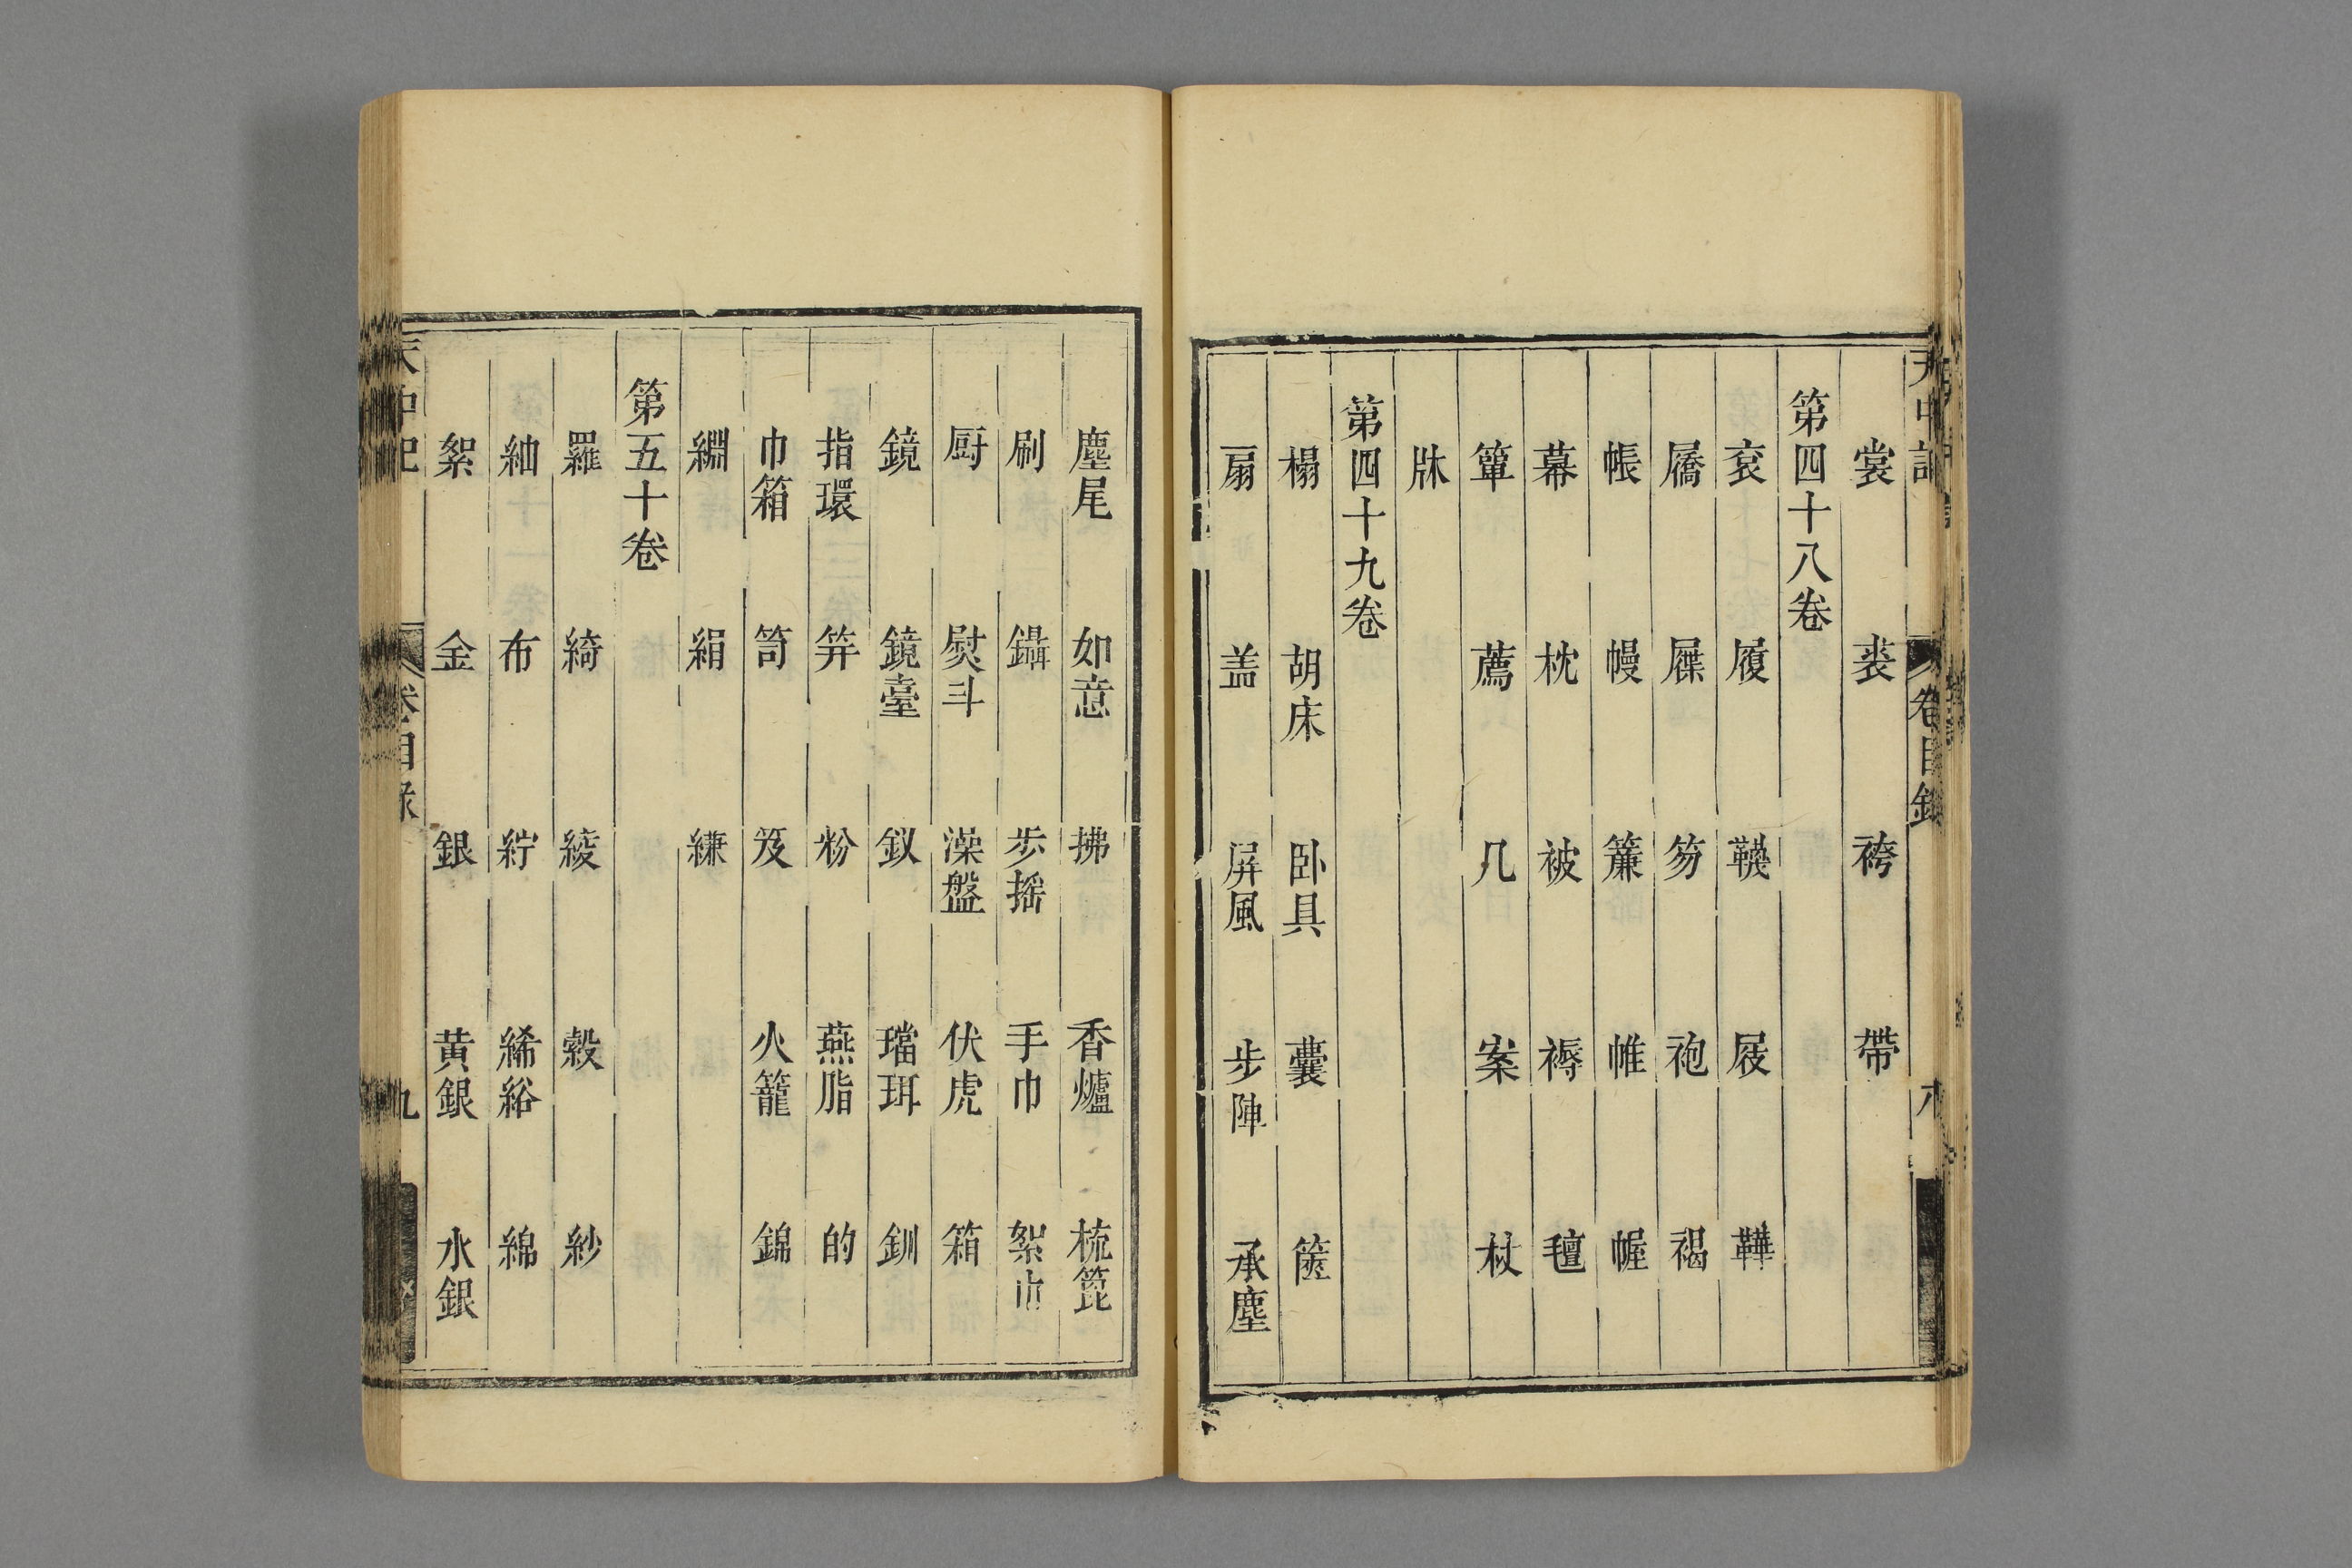 裳 裘 袴 帶
第四十八卷
衮 履 韈 屐 鞾
屩 屧 笏 袍 褐
帳 幔 簾 帷 幄
幕 枕 被 褥 氊
簟 薦 几 案 杖
牀
第四十九卷
榻 胡床 卧具 囊 篋
扇 盖 屏風 步陣 承塵
麈尾 如意 拂 香爐 梳篦
刷 鑷 步摇 手巾 絮巾
厨 熨斗 澡盤 伏虎 箱
鏡 鏡臺 釵 璫珥 釧
指環 筓 粉 燕脂 的
巾箱 笥 笈 火籠 錦
綢 絹 縑
第五十卷
羅 綺 綾 縠 紗
紬 布 紵 絺綌 綿
絮 金 銀 黄銀 水銀
卷目錄 九